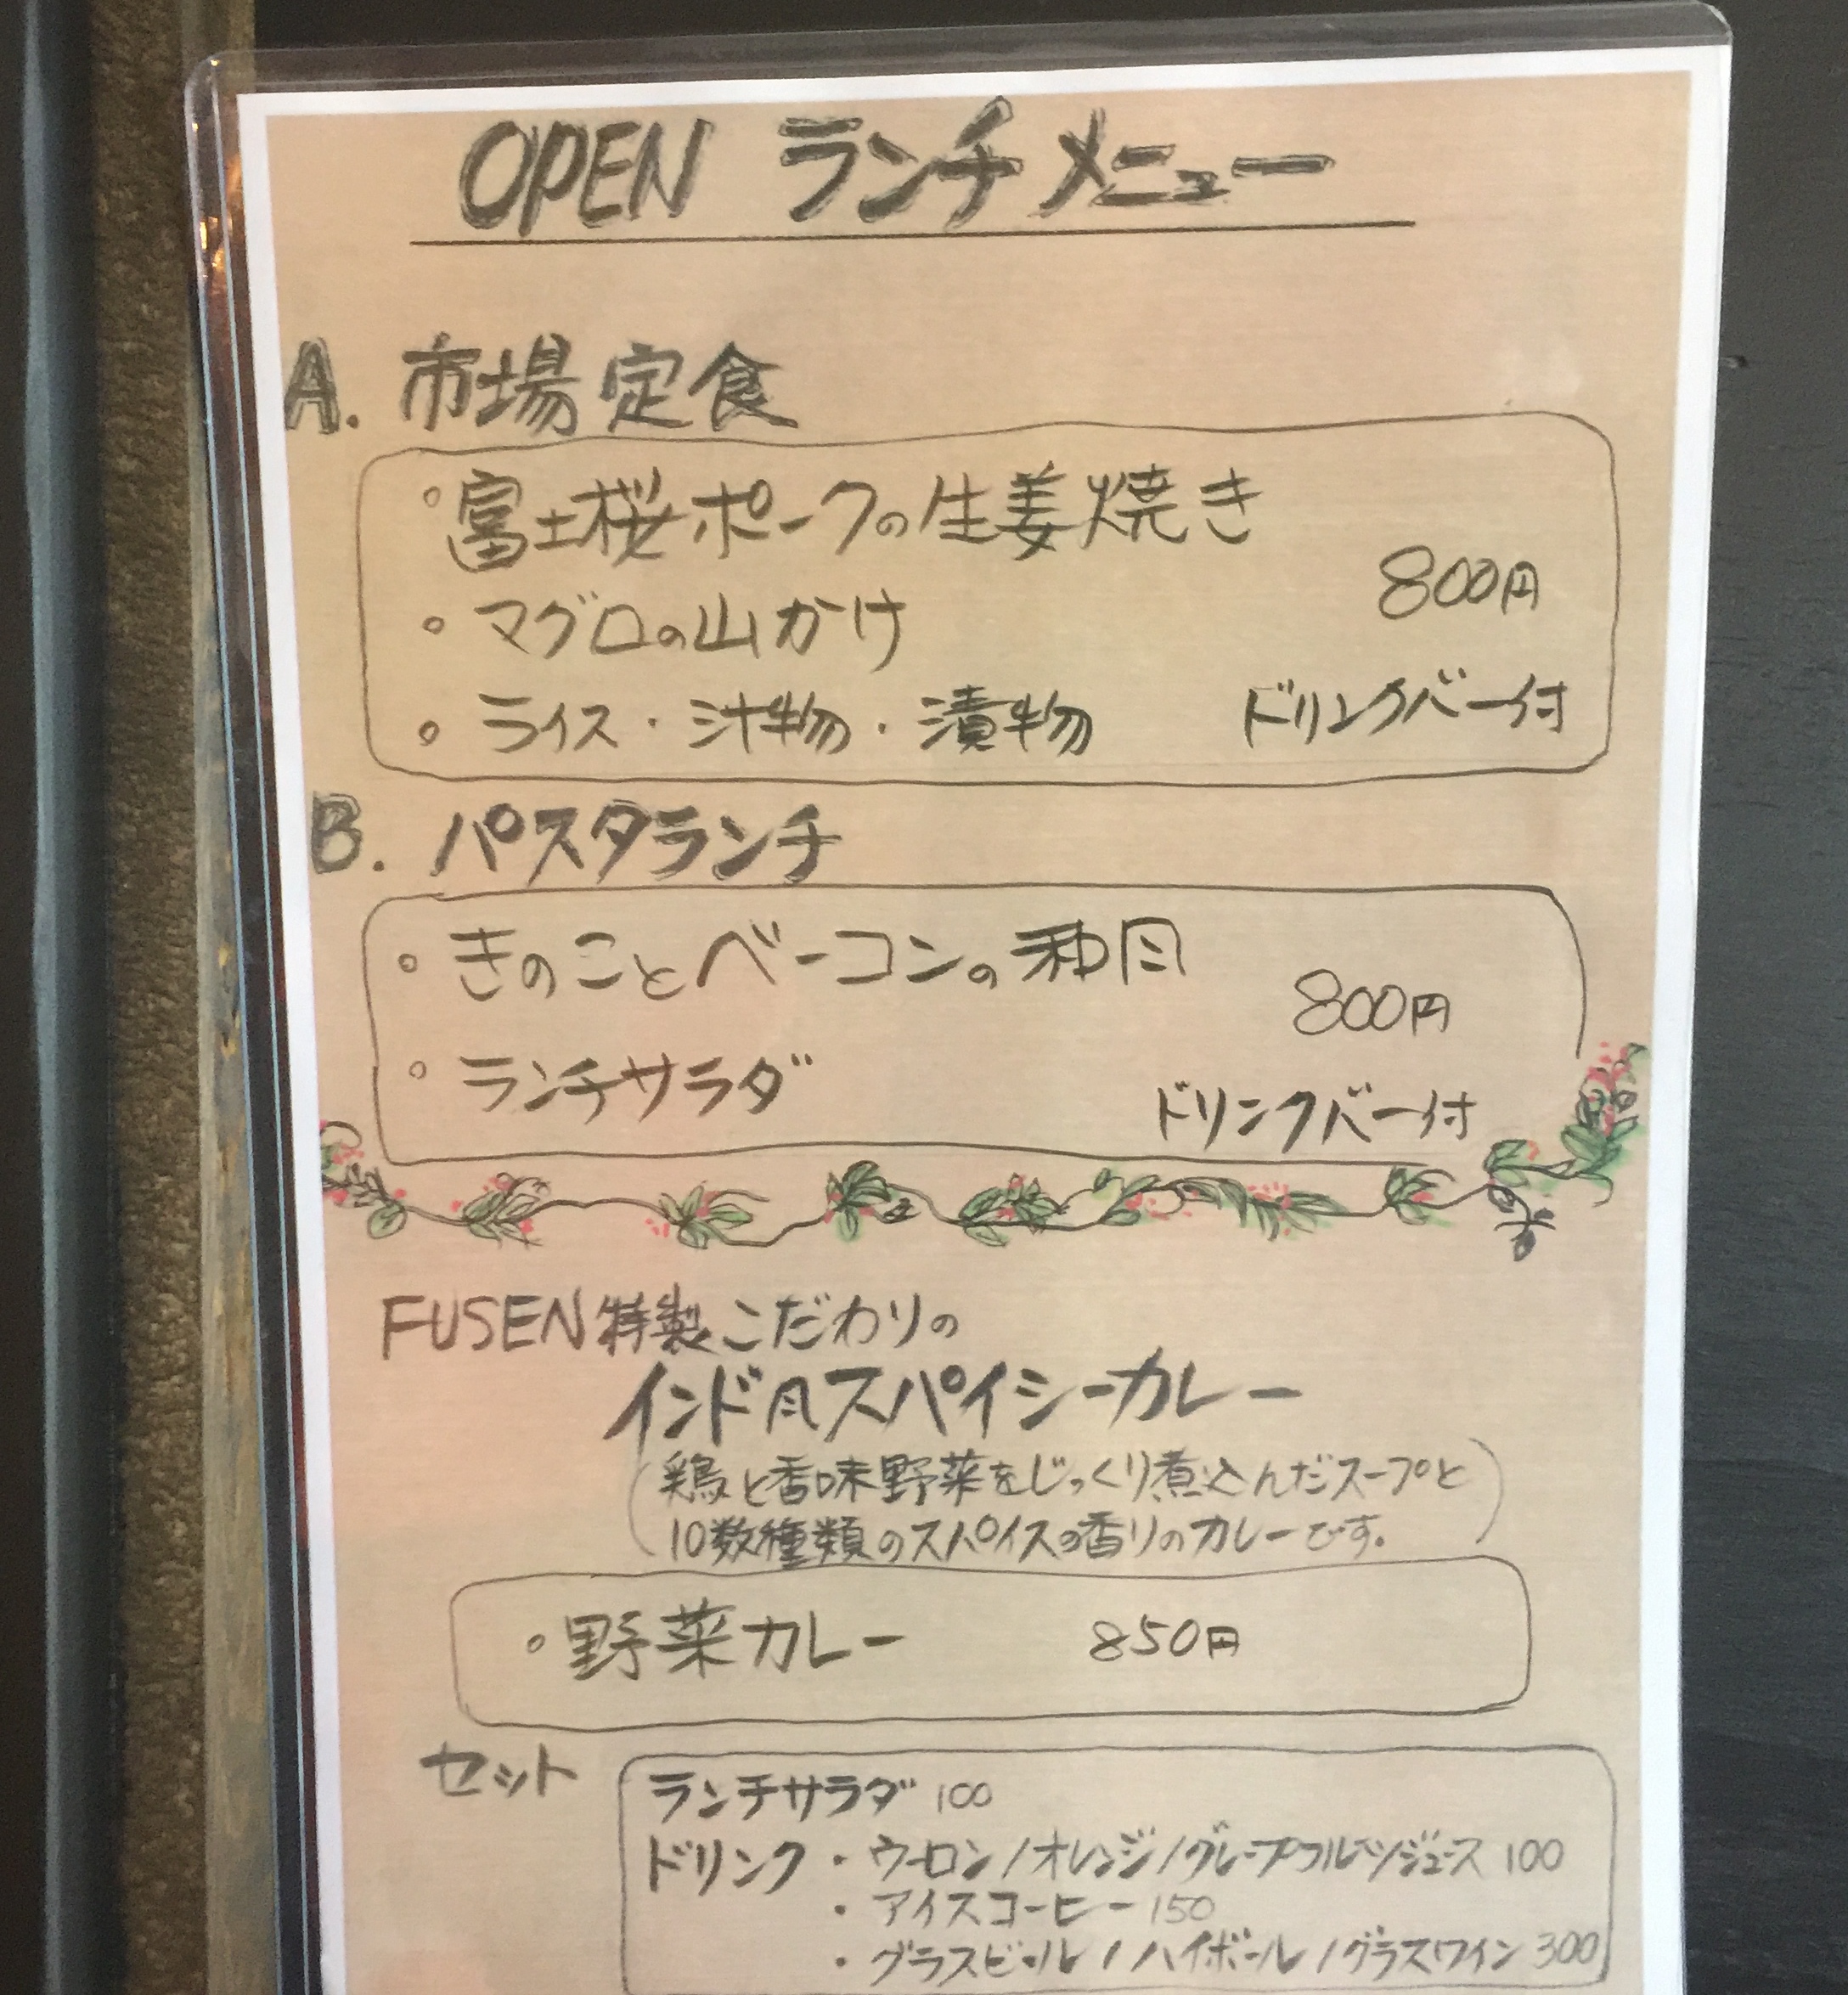 OPEN ランチメニュー
A. 市場定食
・富士桜ポークの生姜焼き
800円
・マグロの山かけ
・ライス・汁物・漬物 ドリンクバー付
B. パスタランチ
・きのことベーコンの和風
800円
・ランチサラダ
ドリンクバー付
FUSEN特製こだわりの
インド風スパイシーカレー
(鶏と香味野菜をじっくり煮込んだスープと
10数種類のスパイスの香りのカレーです。)
・野菜カレー 850円
セット
ランチサラダ 100
ドリンク・ウーロン/オレンジ/グレープフルーツジュース 100
・アイスコーヒー 150
・グラスビール/ハイボール/グラスワイン 300